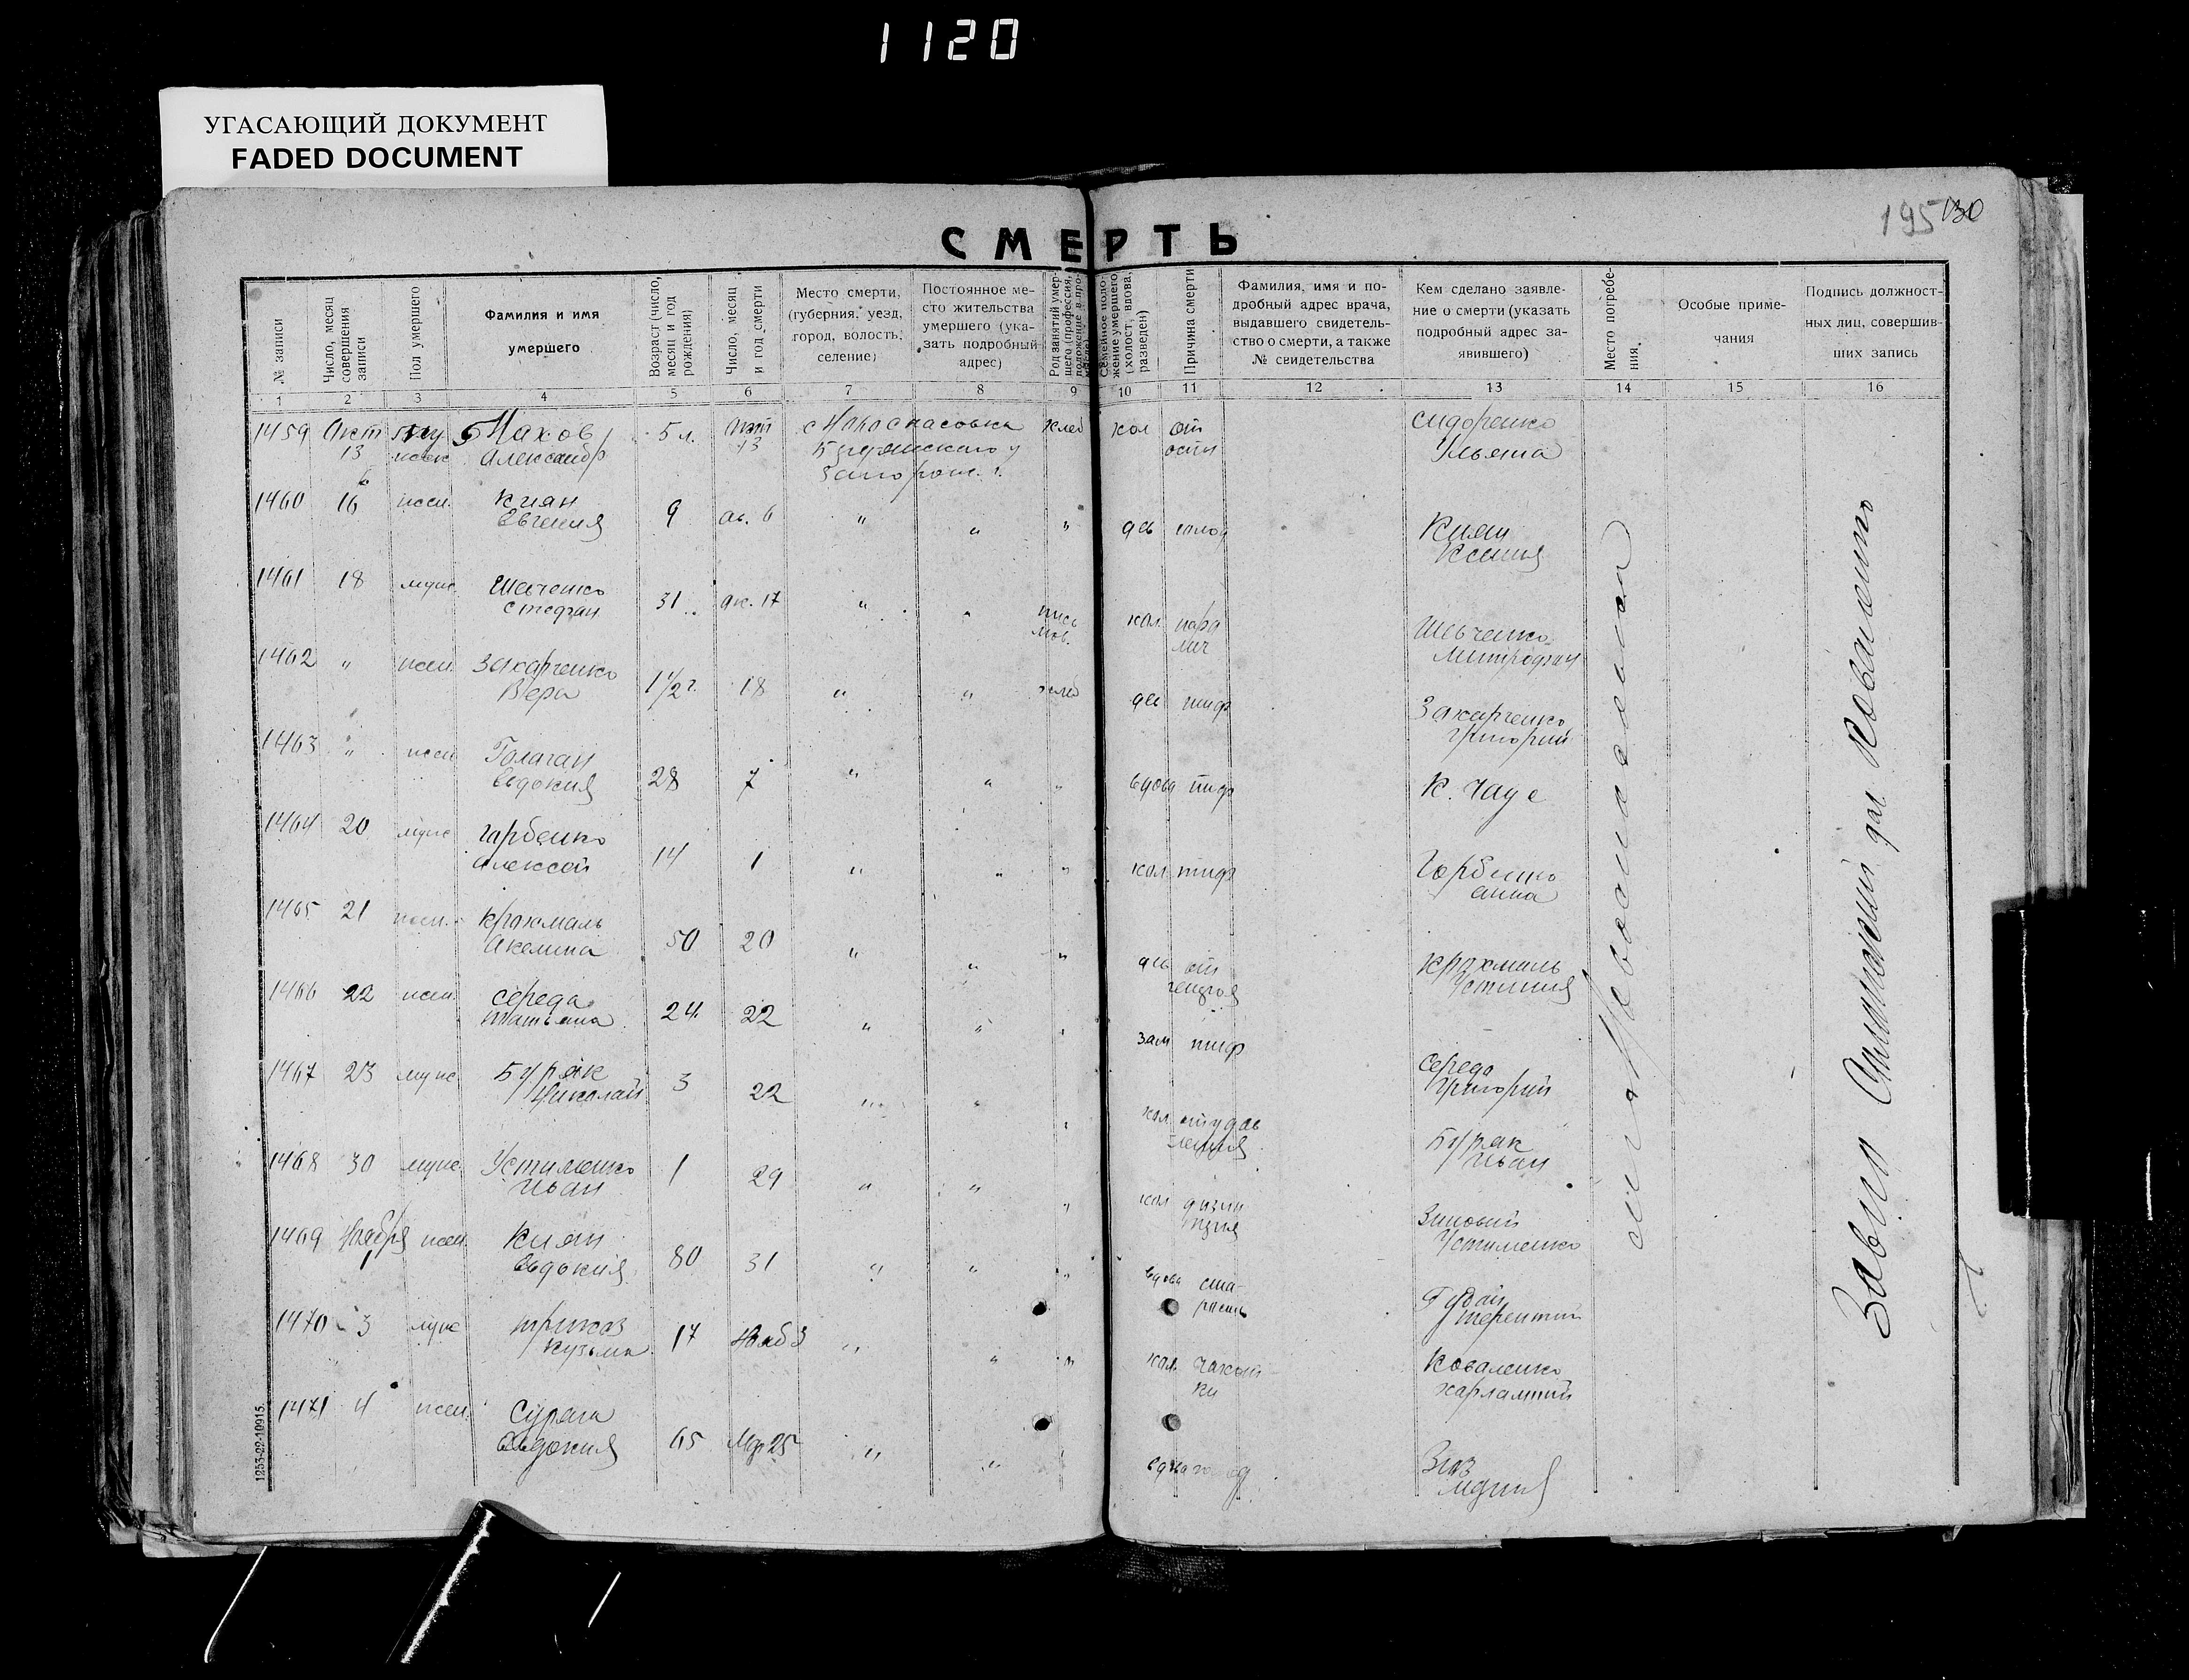 1120
УГАСАЮЩИЙ ДОКУМЕНТ
FADED DOCUMENT
195 130
СМЕРТЬ
№ записи
Число, месяц совершения записи
Пол умершего
Фамилия и имя умершего
Возраст (число, месяц и год рождения)
Число, месяц и год смерти
Место смерти, (губерния, уезд, город, волость, селение)
Постоянное место жительства умершего (указать подробный адрес)
Род занятий умершего (профессия, положение в промысле)
Семейное положение умершего (холост, вдова, разведен)
Причина смерти
Фамилия, имя и подробный адрес врача, выдавшего свидетельство о смерти, а также № свидетельства
Кем сделано заявление о смерти (указать подробный адрес заявившего)
Место погребения.
Особые примечания
Подпись должностных лиц, совершивших запись
1 2 3 4 5 6 7 8 9 10 11 12 13 14 15 16
1459 Окт 13 Махов Александр 5 л. Окт 13 с Новоспасовка Бердянского у Запорож. г. хлеб хол от Сидоренко Ульяна
1460 16 жен. Киян Евгения 9 ок. 6 " " " дев голод Киян Ксения
1461 18 муж. Шевченко Стефан 31 ок. 17 " " хол. пара лич Шевченко Митрофан
1462 " жен. Захарченко Вера 1 1/2 г. 18 " " хлеб дев тиф Захарченко Григорий
1463 " жен Голаган Евдокия 28 7 " " " вдова тиф К. Чауе
1464 20 муж Гарбенко Алексей 14 1 " " " хол тиф Горбенко Анна
1465 21 жен. Крахмаль Акелина 50 20 " " " дев от Крахмаль Устиния
1466 22 жен. Середа Татьяна 24 22 " " " зам тиф Середа Григорий
1467 23 муж Буряк Николай 3 22 " " " хол от удав ления Буряк Иван
1468 30 муж. Устименко Иван 1 29 " " " хол дизин Зиновий Устименко
1469 Ноября 1 жен. Киян Евдокия 80 31 " " " вдова ста- рость Гудай Терентий
1470 3 муж Кузьма 17 Нояб 3 " " " хол. чахот- ки Коваленко Харлампий
1471 4 жен. Сурога Евдокия 65 65 25 " " " вдова голод
Завпп дел Коваленко
1253-22-10915.